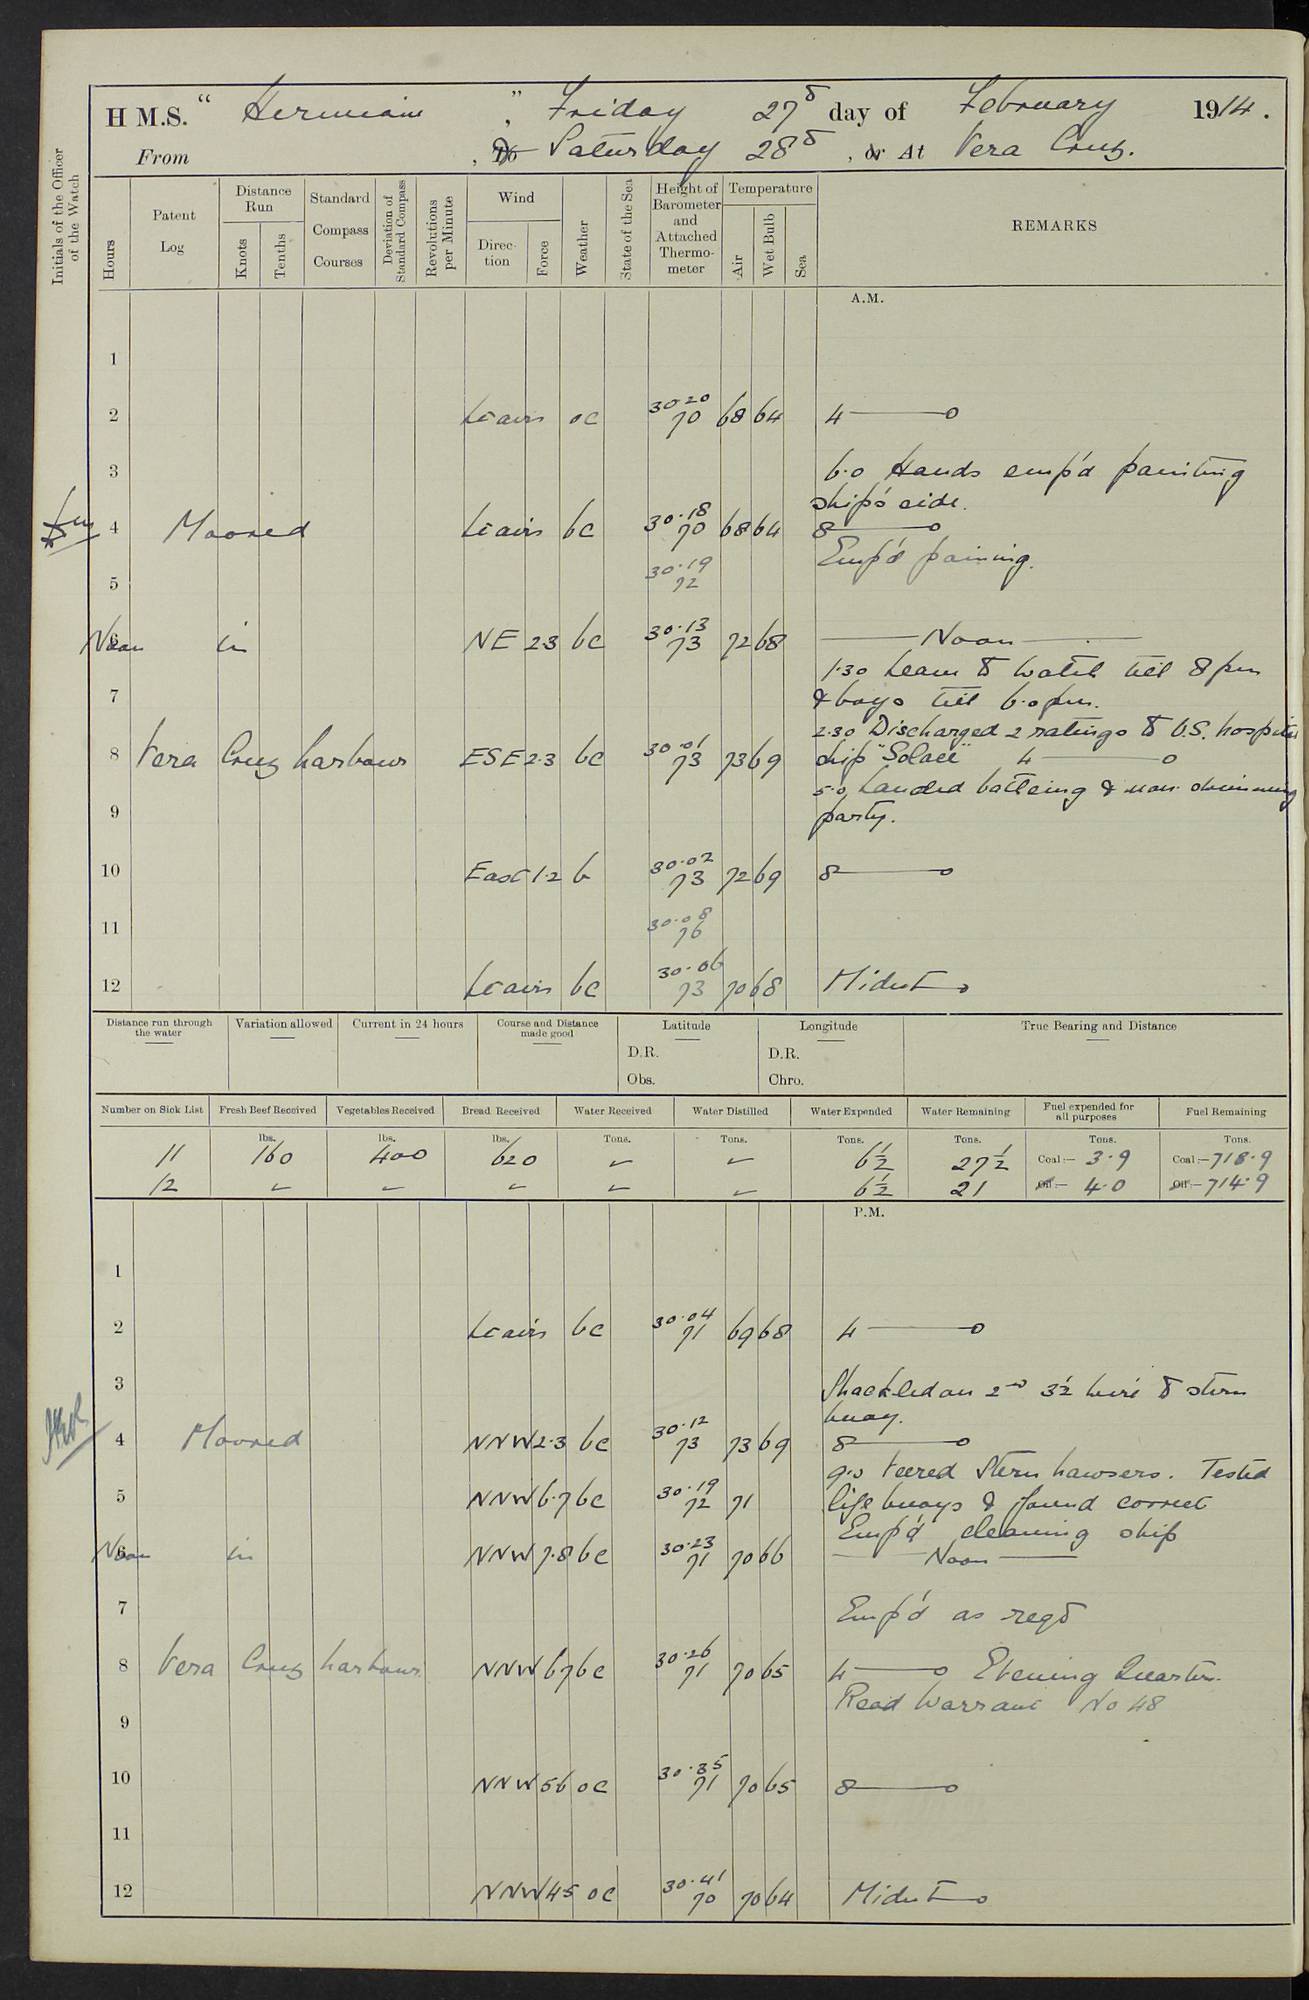 H M.S. " Hermione ", Friday 27th day of February 1914.
From , To Saturday 28th , or At Vera Cruz.
Initials of the Officer of the Watch
Hours
Patent Log
Distance Run
Knots
Tenths
Standard Compass Courses
Deviation of Standard Compass
Revolutions per Minute
Wind
Direction
Force
Weather
State of the Sea
Height of Barometer and Attached Thermometer
Temperature
Air
Wet Bulb
Sea
REMARKS
A.M.
1
2 Lt airs oc 30.20 70 68 64 4 ——o
3 6.0 Hands emp'd painting
ship's side.
4 Moored Lt airs bc 30.18 70 68 64 8 ——o
Emp'd paining.
5 30.19 72
6 Noon in NE 2.3 bc 30.13 73 72 68 —— Noon ——
1.30 Leave to watch till 8 pm
7 & boys till 6.0 pm.
2.30 Discharged 2 ratings to U.S. hospital
8 Vera Cruz harbour ESE 2.3 bc 30.01 73 73 69 ship "Solace" 4 ——o
5.0 Landed bathing & non swimming
9 party.
10 East 1.2 b 30.02 73 72 69 8 ——o
11 30.08 76
12 Lt airs bc 30.06 73 70 68 Midnt —o
Distance run through the water
Variation allowed
Current in 24 hours
Course and Distance made good
Latitude
D.R.
Obs.
Longitude
D.R.
Chro.
True Bearing and Distance
Number on Sick List Fresh Beef Received Vegetables Received Bread Received Water Received Water Distilled Water Expended Water Remaining Fuel expended for all purposes Fuel Remaining
lbs. lbs. lbs. Tons. Tons. Tons. Tons. Tons. Tons.
11 160 400 620 ~ ~ 6½ 27½ Coal:— 3.9 Coal:— 718.9
12 ~ ~ ~ ~ ~ 6½ 21 Oil:— 4.0 Oil:— 714.9
P.M.
1
2 Lt airs bc 30.04 71 69 68 4 ——o
3 Shackled on 2nd 3½ wire to stern
buoy.
4 Moored NNW 2.3 bc 30.12 73 73 69 8 ——o
9.0 Veered Stern hawsers. Tested
5 NNW 6.7 bc 30.19 72 71 life buoys & found correct
Emp'd cleaning ship
6 Noon in NNW 7.8 bc 30.23 71 70 66 —— Noon ——
7 Emp'd as reqd
8 Vera Cruz harbour NNW 6 7 bc 30.26 71 70 65 4 ——o Evening Quarters.
Read Warrant No 48
9
10 NNW 5 6 oc 30.35 71 70 65 8 ——o
11
12 NNW 4 5 oc 30.41 70 70 64 Midnt —o